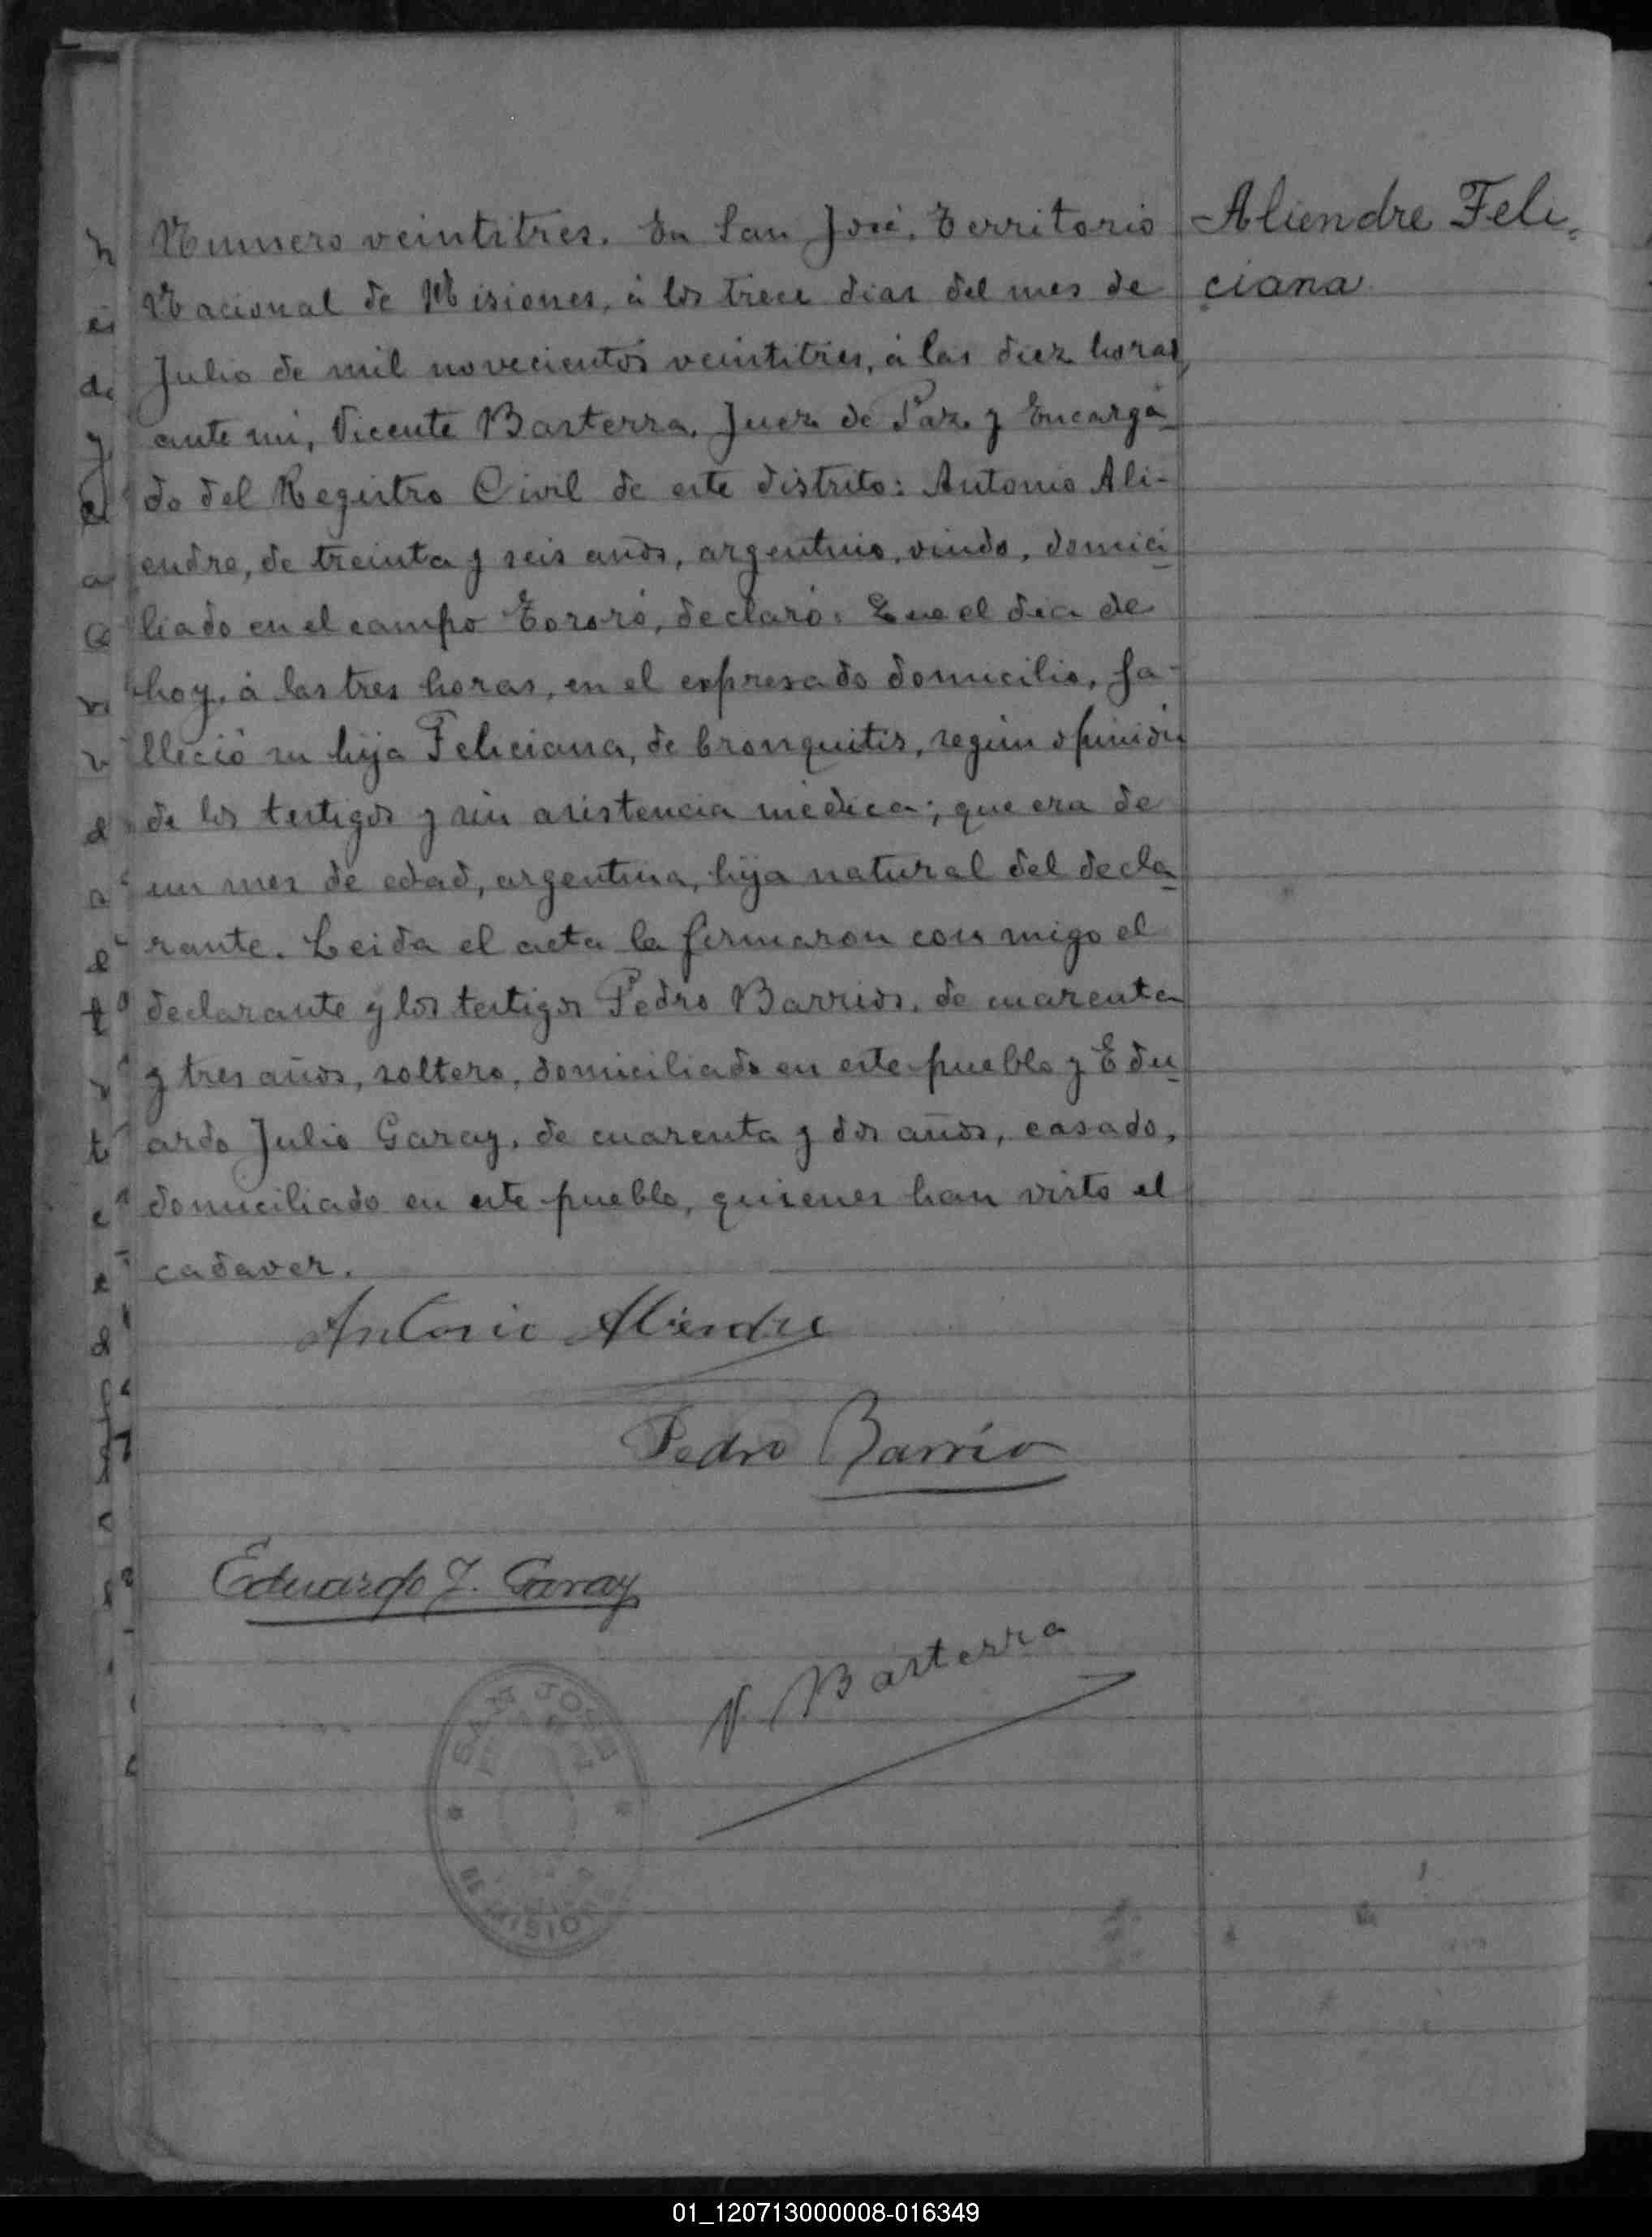 Aliendre Feli-
ciana
Numero veintitres. En San José, Territorio
Nacional de Misiones, á los trece dias del mes de
Julio de mil novecientos veintitres, á las diez horas,
ante mi, Vicente Basterra, Juez de Paz y Encarga-
do del Registro Civil de este distrito: Antonio Ali-
endre, de treinta y seis años, argentino, viudo, domici-
liado en el campo Tororó, declaró: Que el dia de
hoy, á las tres horas, en el expresado domicilio, fa-
lleció su hija Feliciana, de bronquitis, según opinión
de los testigos y sin asistencia médica; que era de
un mes de edad, argentina, hija natural del decla-
rante. Leida el acta la firmaron con migo el
declarante y los testigos Pedro Barrios, de cuarenta
y tres años, soltero, domiciliado en este pueblo y Edu-
ardo Julio Garay, de cuarenta y dos años, casado,
domiciliado en este pueblo, quienes han visto el
cadaver.
Antonio Aliendre
Pedro Barrio
Eduardo J. Garay
V. Basterra
SAN JOSE
MISIONES
01_120713000008-016349